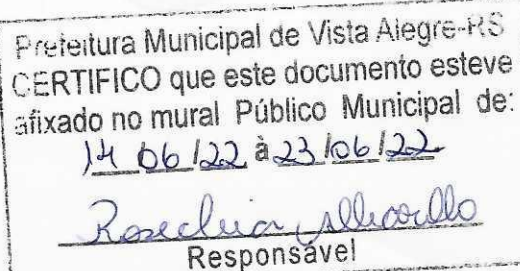 Prefeitura Municipal de Vista Alegre-RS
CERTIFICO que este documento esteve
afixado no mural Público Municipal de:
14 06 / 22 à 23 / 06 / 22
Responsável